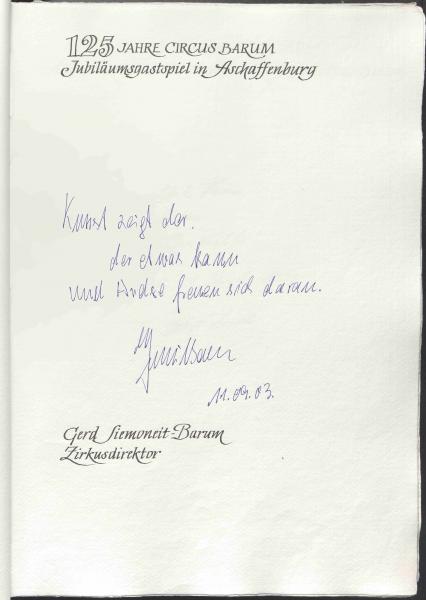 125 JAHRE CIRCUS BARUM
Jubiläumsgastspiel in Aschaffenburg
Kunst zeigt der.
der etwas kann
und Andre freuen sich daran.
11.09.03.
Gerd Siemoneit-Barum
Zirkusdirektor